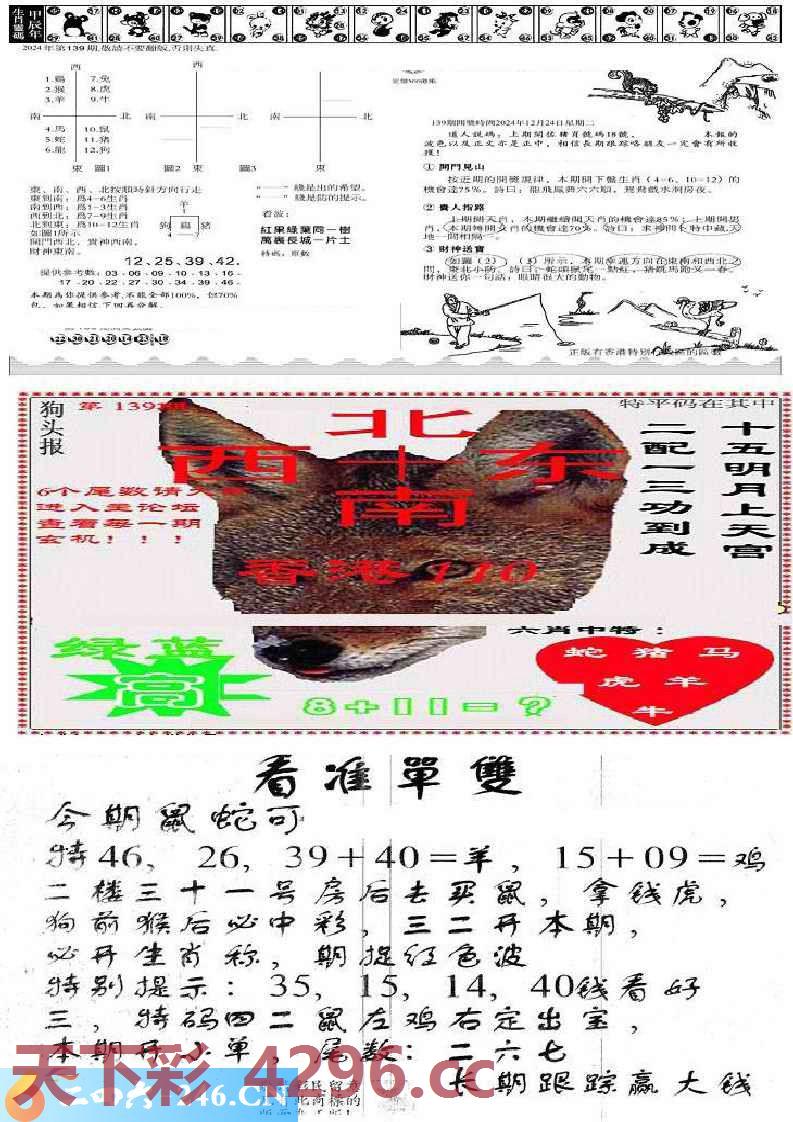 甲辰年
生肖靈碼
2024年第139期,敬請不要翻版,否則失真.
西
西
1.鷄 7.兔
2.猴 8.虎
3.羊 9.牛
南 北 南 北 南 北
4.馬 10.鼠
5.蛇 11.猪
6.龍 12.狗
東 圖1 圖2 東 圖3 東
東、南、西、北按順時針方向行走
東到南：爲4-6生肖
南到西：爲1-3生肖
西到北：爲7-9生肖
北到東：爲10-12生肖
如圖1所示
開門西北，貴神西南，
財神東南。
羊
1
狗 鷄 猪
4 7
"——" 綫是出的希望。
"——" 綫是防的提示。
看波：
紅果綠葉同一樹
萬裏長城一片土
特碼：單數
12、25、39、42.
提供參考數：03-06-09-10-13-16-
17-20-22-27-30-34-39-46-
本題爲你提供參考，不能全部100%，但70%
139期開獎時間2024年12月24日星期二
道人説碼：上期開位猪肖號碼18號， 本報的
波色以及正文亦是正中，相信長期跟踪咯朋友一定會有所收
獲！
① 開門見山
按近期的開獎規律，本期開下盤生肖（4-6、10-12）的
機會達75%。詩曰：龍飛鳳舞六六順，鴛鴦戲水洞房夜。
② 貴人指路
上期開天肖，本期繼續開天肖的機會達85%；上期開男
肖，本期轉開女肖的機會達70%。詩曰：求神問卜特中藏，天
地一間相隔一。
③ 財神送寶
如圖（2）、（3）所示，本期幸運方向在東南和西北之
間，東北小防。詩曰：蛇頭鼠尾一點紅，猪跳馬跑又一春。
財神送你一句話：眼睛很大的動物。
狗头报
第 139期
特平码在其中
北
西 十 东
南
6个尾数请大
进入主论坛
查看每一期
玄机！！！
香港 170
十五明月上天宫
二配一三功到成
六肖中特：
绿蓝
富
8+11=?
蛇 猪 马
虎 羊
牛
看准單雙
今期鼠蛇可
特46，26，39+40=羊，15+09=鸡
二楼三十一号房后去买鼠，拿钱虎，
狗前猴后必中彩，三二开本期，
必开生肖称，期捉红色波
特别提示：35，15，14，40钱看好
三，特码四二鼠左鸡右定出宝，
本期开小单，尾数：二六七
长期跟踪赢大钱
天下彩 4296.cc
二四六-246.CN